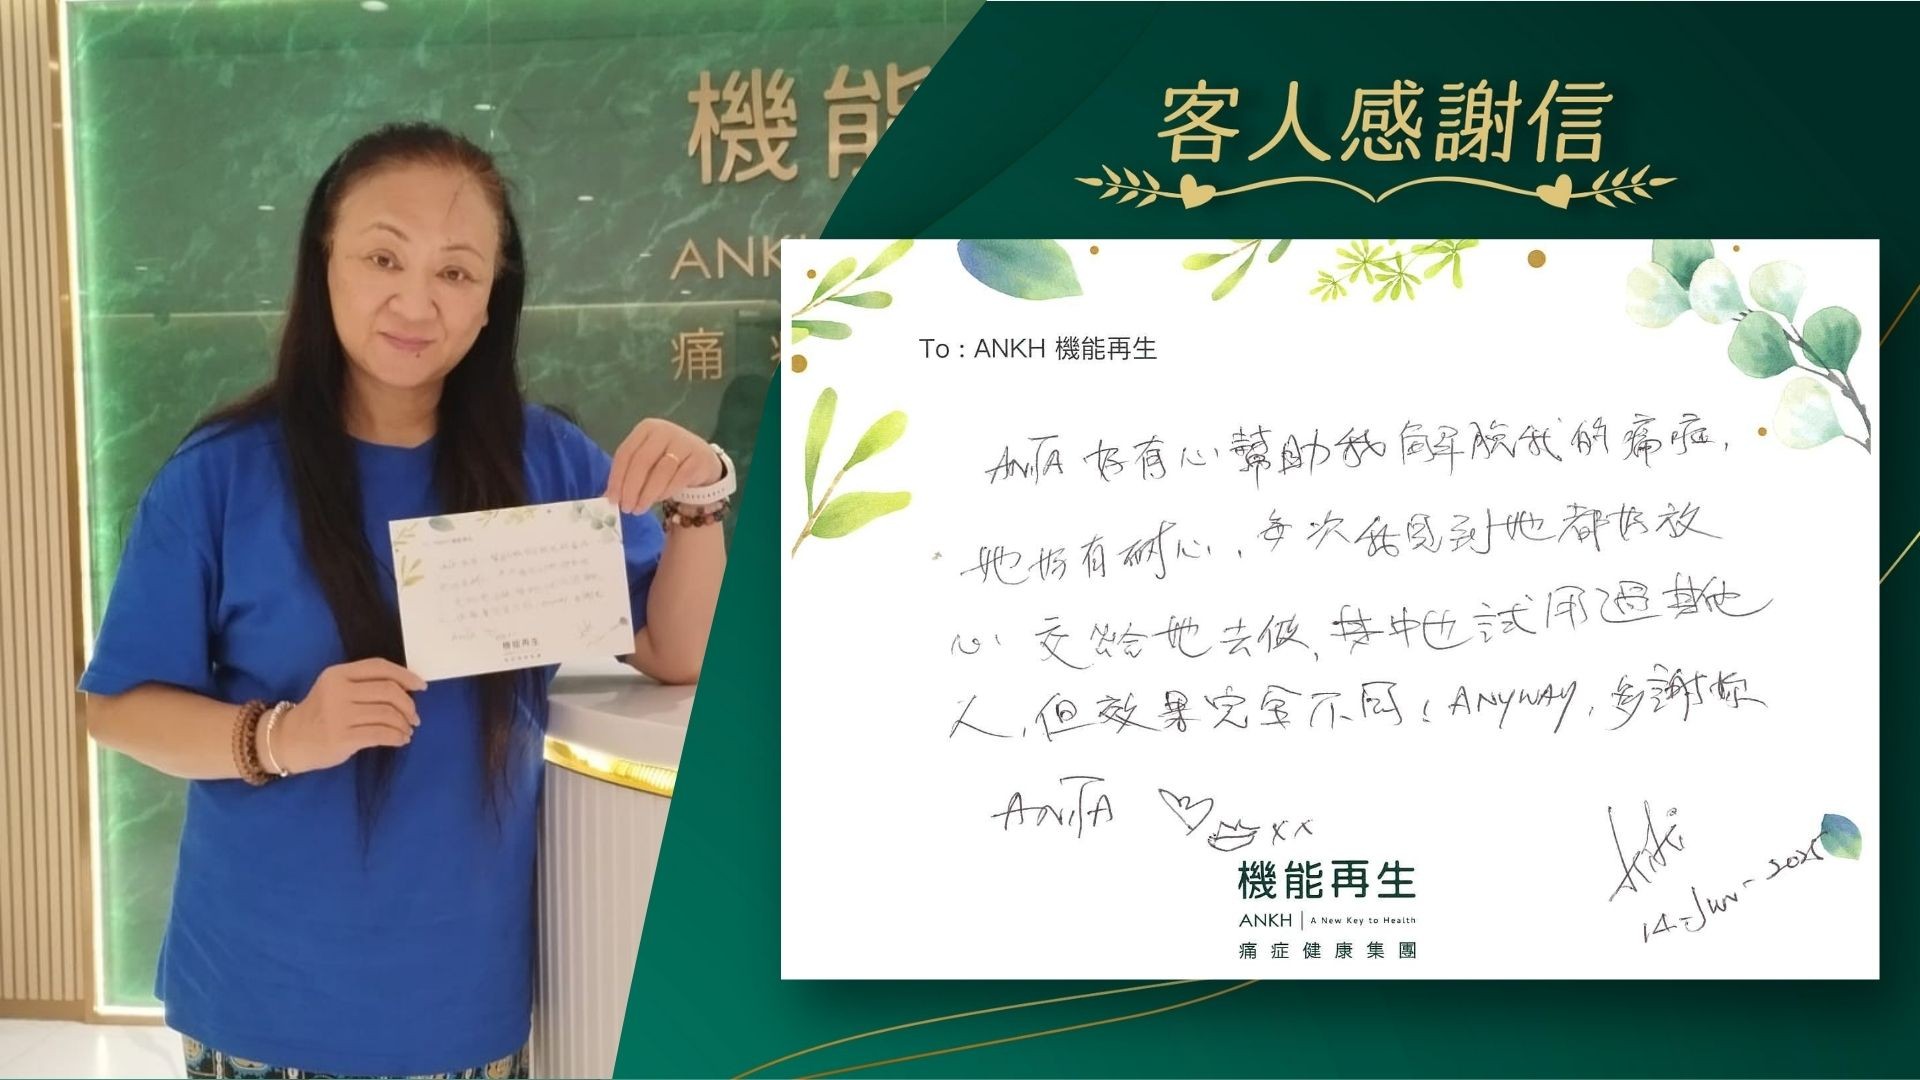 機能
ANK
痛
客人感謝信
To : ANKH 機能再生
ANITA 好有心幫助我解除我的痛症,
她好有耐心, 每次我見到她都好放
心交給她去做, 其中也試用過其他
人, 但效果完全不同! ANYWAY, 多謝你
ANITA xx
Kiki
14-Jun-2025
機能再生
ANKH | A New Key to Health
痛症健康集團
機能再生